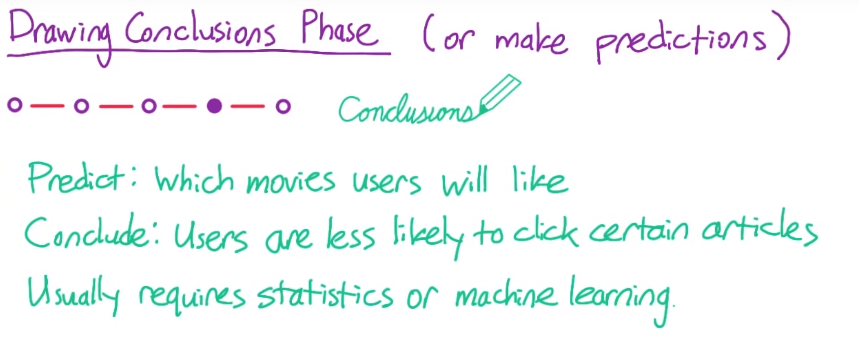 Drawing Conclusions Phase (or make predictions)
Conclusions
Predict: Which movies users will like
Conclude: Users are less likely to click certain articles
Usually requires statistics or machine learning.